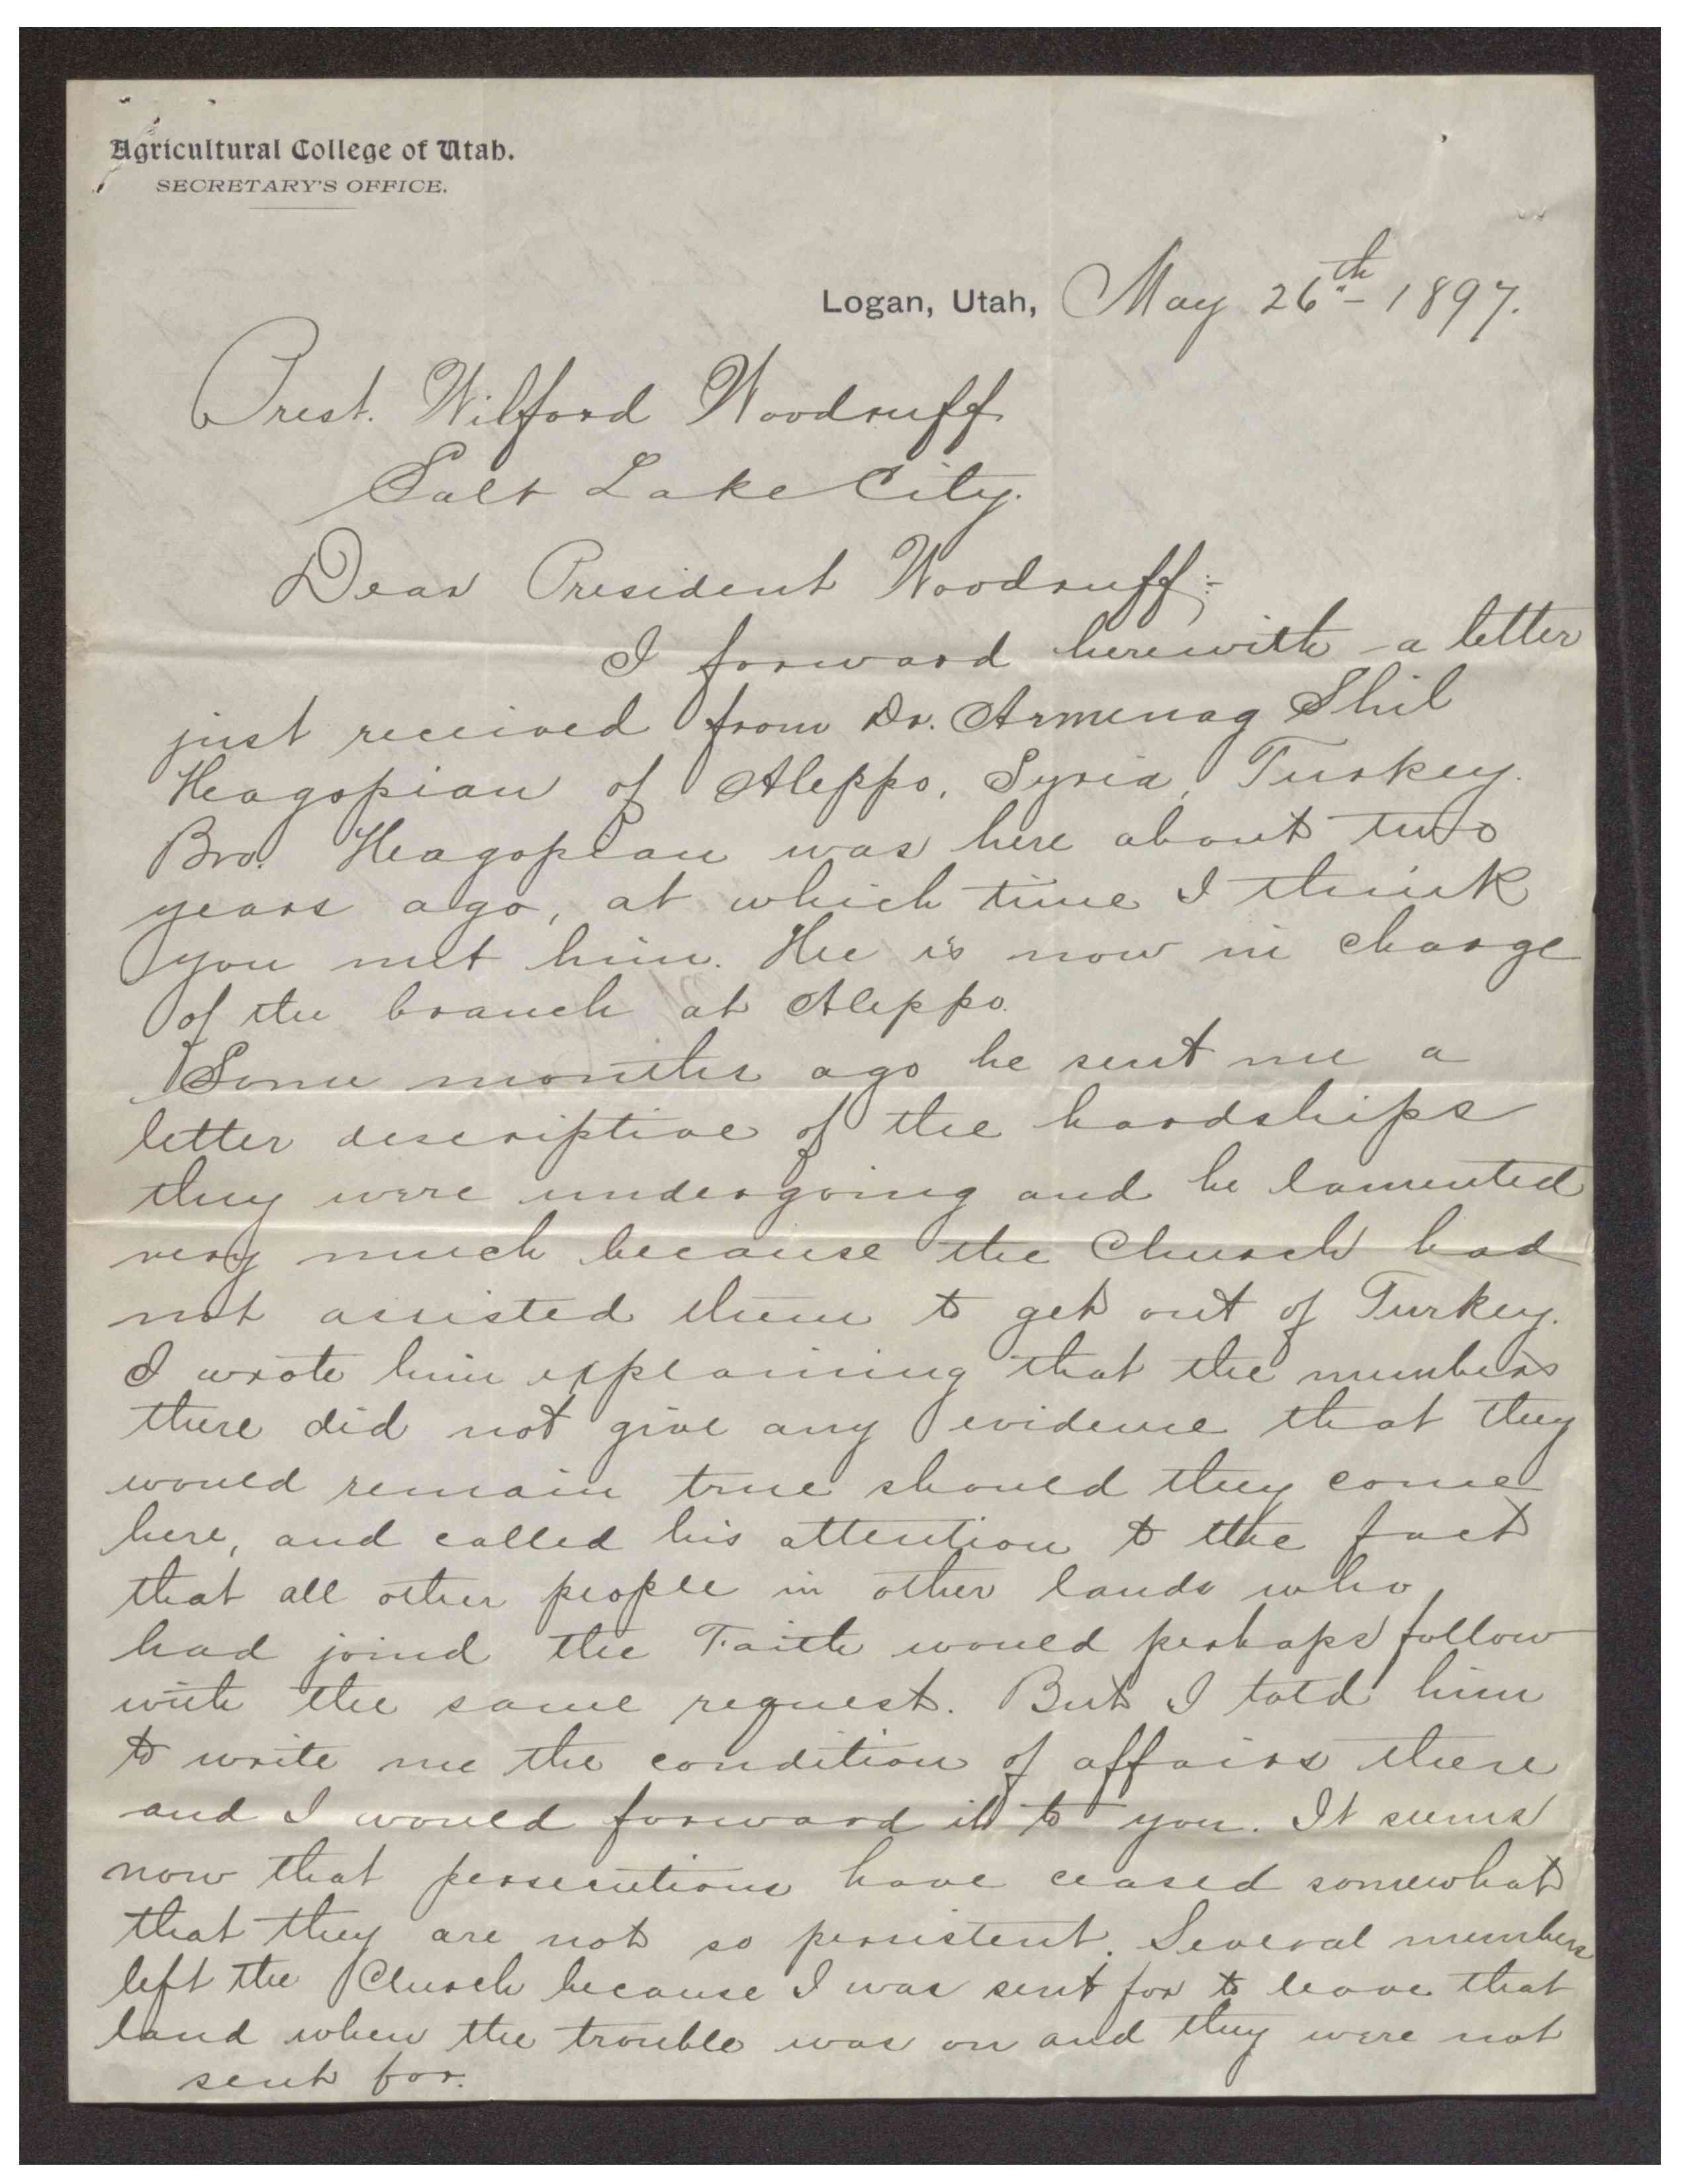 Agricultural College of Utah.
SECRETARY'S OFFICE.
Logan, Utah, May 26th 1897.
Prest. Wilford Woodruff
Salt Lake City.
Dear President Woodruff:-
I forward herewith a letter
just received from Dr. Armenag Shil
Heagopian of Aleppo, Syria, Turkey.
Bro. Heagopian was here about two
years ago, at which time I think
you met him. He is now in charge
of the branch at Aleppo.
Some months ago he sent me a
letter descriptive of the hardships
they were undergoing and he lamented
very much because the Church had
not assisted them to get out of Turkey.
I wrote him explaining that the members
there did not give any evidence that they
would remain true should they come
here, and called his attention to the fact
that all other people in other lands who
had joind the Faith would perhaps follow
with the same request. But I told him
to write me the condition of affairs there
and I would forward it to you. It seems
now that persecutions have ceased somewhat
that they are not so persistent. Several members
left the Church because I was sent for to leave that
land when the trouble was on and they were not
sent for.